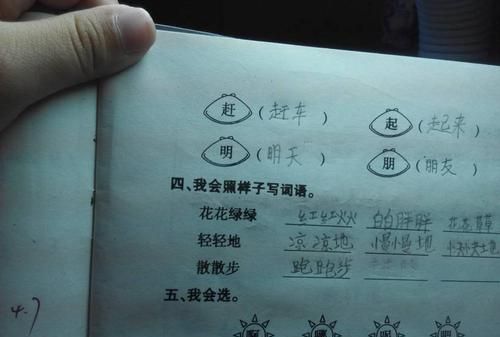 赶 (赶车) 起 (起来)
明 (明天) 朋 (朋友)
四、我会照样子写词语。
花花绿绿 红红火火 白白胖胖 花花草草
轻轻地 凉凉地 慢慢地
散散步 跑跑步
五、我会选。
啊 哪 呢 吧
4.7